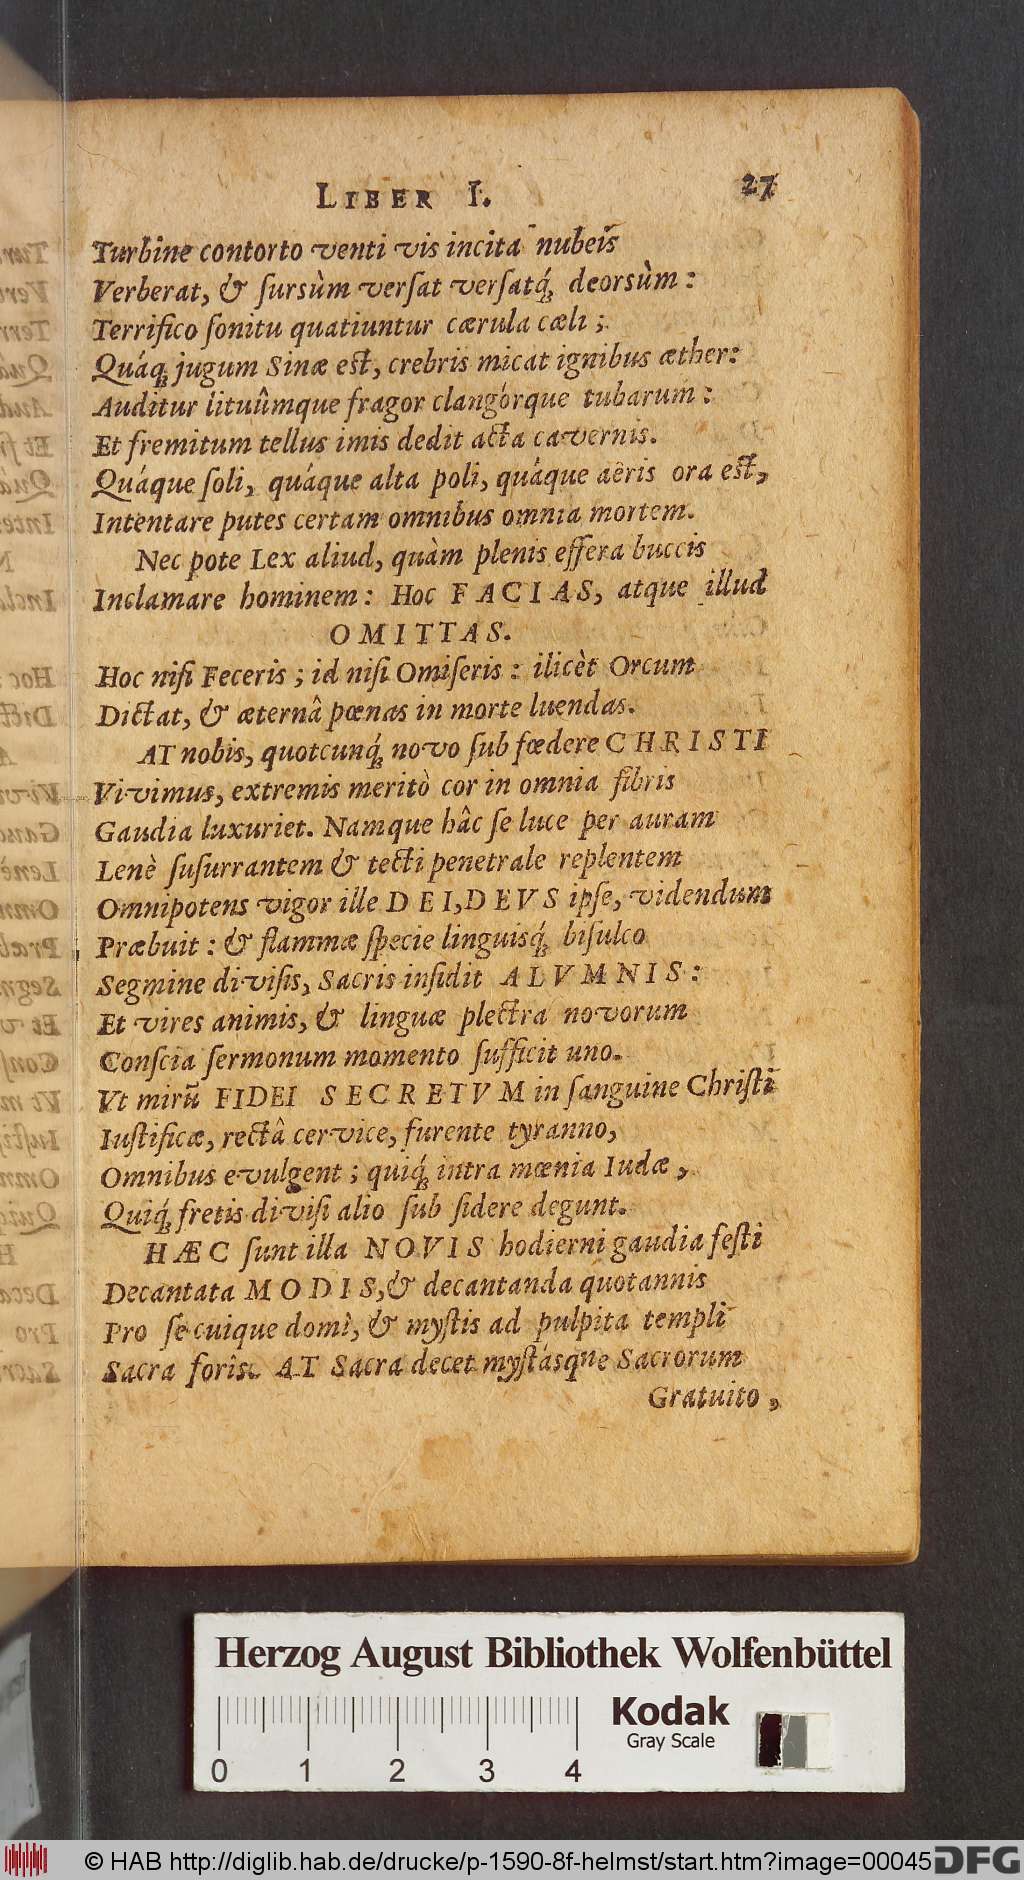 LIBER I. 27
Turbine contorto venti vis incita nubeis̃
Verberat, & ſursùm verſat verſatq́; deorsùm :
Terrifico ſonitu quatiuntur cærula cæli ;
Quáq; jugum Sinæ est, crebris micat ignibus æther:
Auditur lituûmque fragor clangórque tubarum :
Et fremitum tellus imis dedit acta cavernis.
Quáque ſoli, quáque alta poli, quáque aëris ora est,
Intentare putes certam omnibus omnia mortem.
Nec pote Lex aliud, quàm plenis effera buccis
Inclamare hominem : Hoc FACIAS, atque illud
OMITTAS.
Hoc niſi Feceris ; id niſi Omiſeris : ilicèt Orcum
Dictat, & æternâ pœnas in morte luendas.
AT nobis, quotcunq́; novo ſub fœdere CHRISTI
Vivimus, extremis meritò cor in omnia fibris
Gaudia luxuriet. Namque hâc ſe luce per auram
Lenè ſuſurrantem & tecti penetrale replentem
Omnipotens vigor ille DEI, DEVS ipſe, videndum
Præbuit : & flammæ ſpecie linguisq́; biſulco
Segmine diviſis, Sacris inſidit ALVMNIS :
Et vires animis, & linguæ plectra novorum
Conſcia ſermonum momento ſufficit uno.
Vt mirũ FIDEI SECRETVM in ſanguine Chriſti
Iuſtificæ, rectâ cervice, furente tyranno,
Omnibus evulgent ; quiq́; intra mœnia Iudæ,
Quiq́; fretis diviſi alio ſub ſidere degunt.
HÆC ſunt illa NOVIS hodierni gaudia feſti
Decantata MODIS, & decantanda quotannis
Pro ſe cuique domì, & myſtis ad pulpita templi
Sacra forìs. AT Sacra decet myſtásque Sacrorum
Gratuito,
Herzog August Bibliothek Wolfenbüttel
Kodak
Gray Scale
0 1 2 3 4
© HAB http://diglib.hab.de/drucke/p-1590-8f-helmst/start.htm?image=00045 DFG